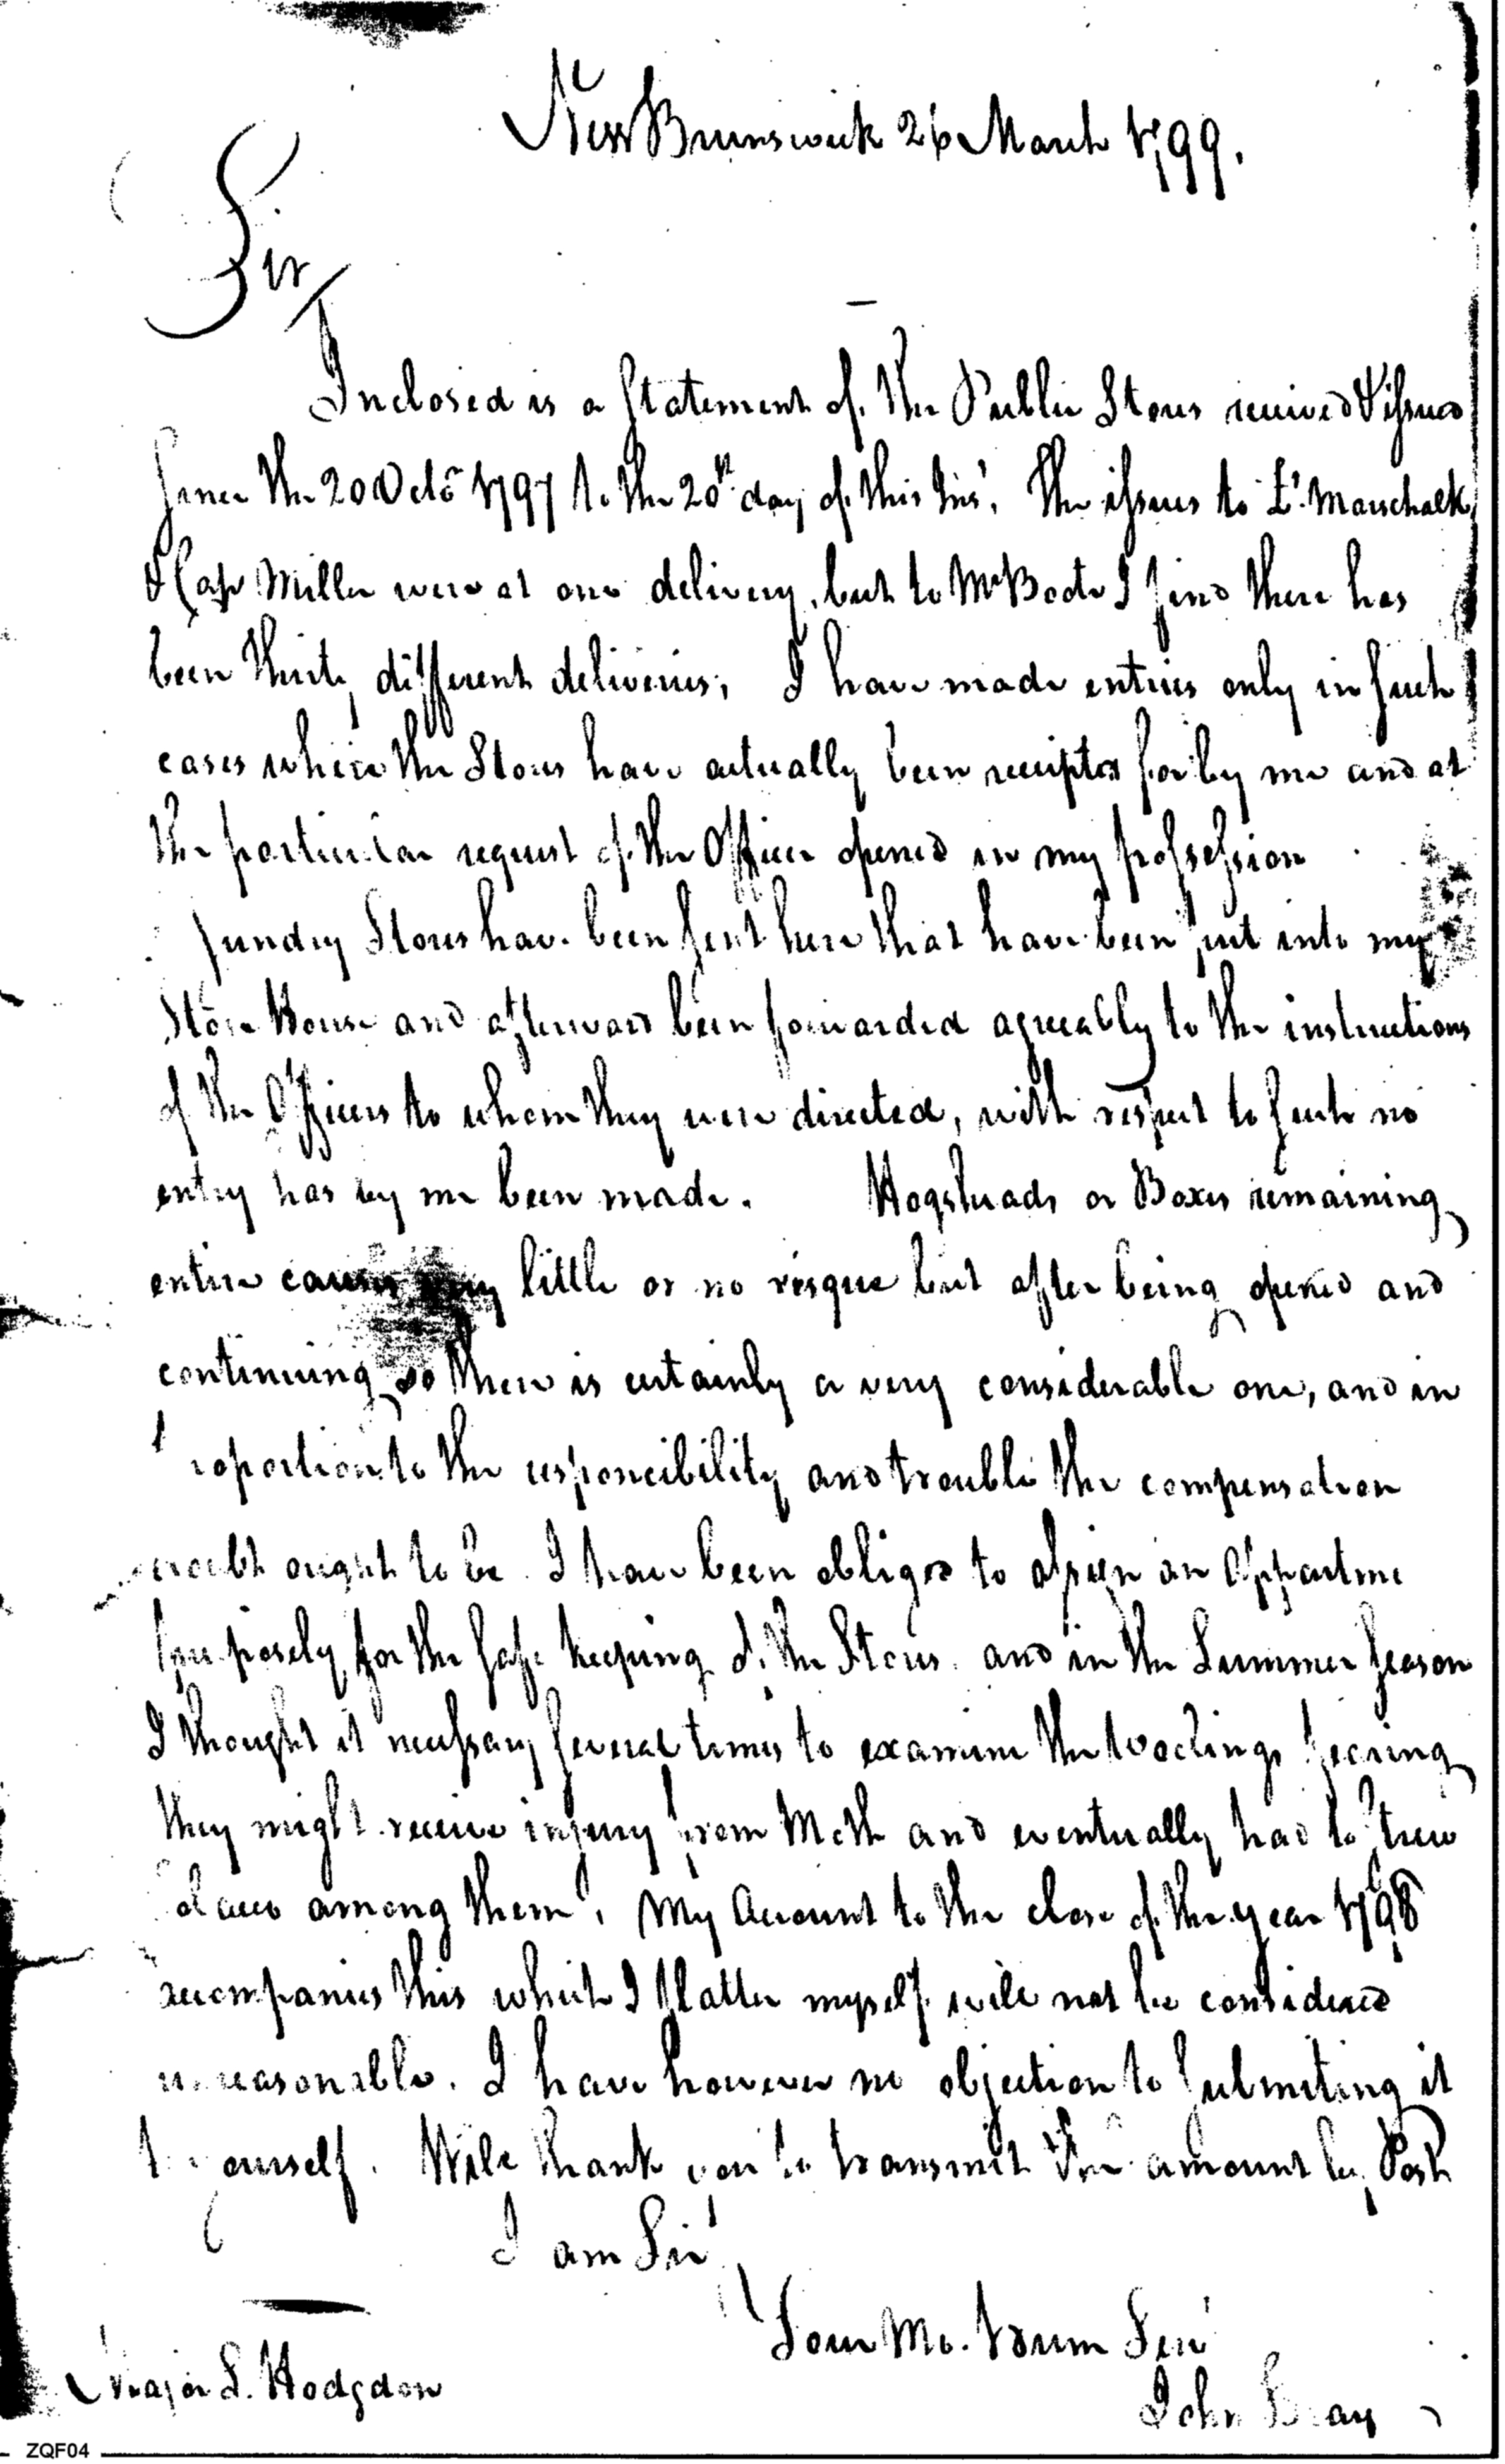 New Brunswick 26 March 1799.
Sir
Inclosed is a Statement of the Public Stores received & issued
since the 20 Octo 1797 to the 20th day of this Inst. The issues to Lt. Marschalk
& Capt Miller were at one delivery, but to Mr Boote I find there has
been thirty different deliveries; I have made entries only in such
cases where the Stores have actually been receipted for by me and at
the particular request of the Officer opened in my possession
Sundry Stores have been sent here that have been put into my
Store House and afterward been forwarded agreeably to the instructions
of the Officers to whom they were directed, with respect to such no
entry has by me been made. Hogsheads or Boxes remaining
entire causes very little or no risque but after being opened and
continuing so there is certainly a very considerable one, and in
proportion to the responcibility and trouble the compensation
ought to be. I have been obliged to an Appartme
purposely for the safe keeping of the Stores and in the Summer season
I thought it necessary several times to examine the Woolings fearing
they might receive injury from Moth and eventually had to strew
among them. My Account to the close of the year 1798
accompanies this which I flatter myself will not be considered
unreasonable. I have however no objection to submiting it
to yourself. Will thank you to transmit the amount by Post
I am Sir
Your Mo. Hum Ser
John Bray
Major S. Hodgdon
ZQF04